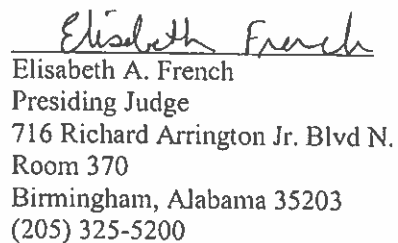 Elisabeth French
Elisabeth A. French
Presiding Judge
716 Richard Arrington Jr. Blvd N.
Room 370
Birmingham, Alabama 35203
(205) 325-5200